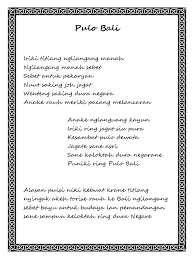 Pulo Bali
Iriki titiang nglangang manah
Ngilangang manah sebet
Sebet untuk pekaryan
Nuut saking joh jagat
Wenteng saking dura negara
Anake rauh meriki pacang melancaran
Anake nglanguang kayun
Iriki ring jagat siu pura
Kesambat pulo dewata
Jagate sane asri
Sane kaloktah dura negarane
Puniki ring Pulo Bali
Alasan puisi niki kebuat krane titiang
nyingak akeh torise rauh ke Bali ngilangang
sebet bayu antuk budaya lan pemandangan
sane sampun keloktah ring dura Negare